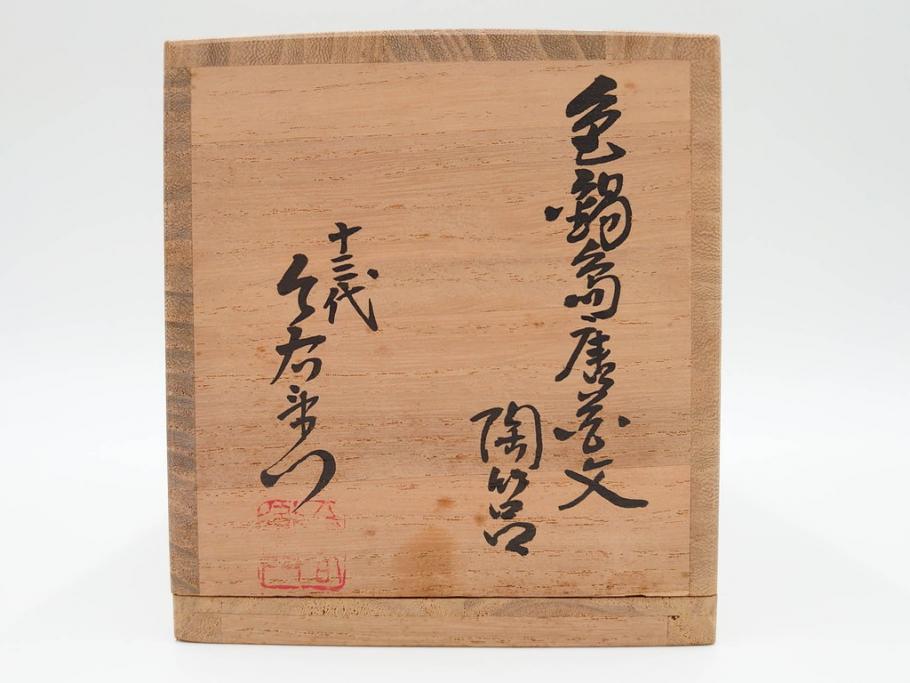 色鍋島唐花文
陶筥
十三代
今右衛門